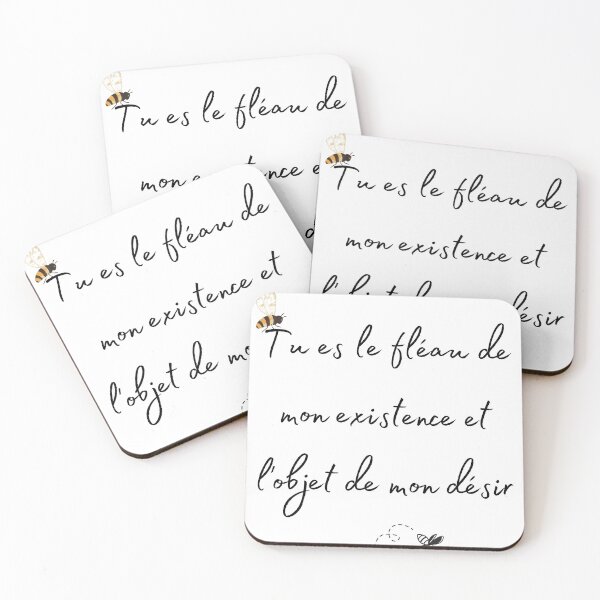 Tu es le fléau de
mon existence et
Tu es le fléau de
mon existence et
l'objet de mon désir
Tu es le fléau de
mon existence et
l'objet de mo
Tu es le fléau de
mon existence et
l'objet de mon désir